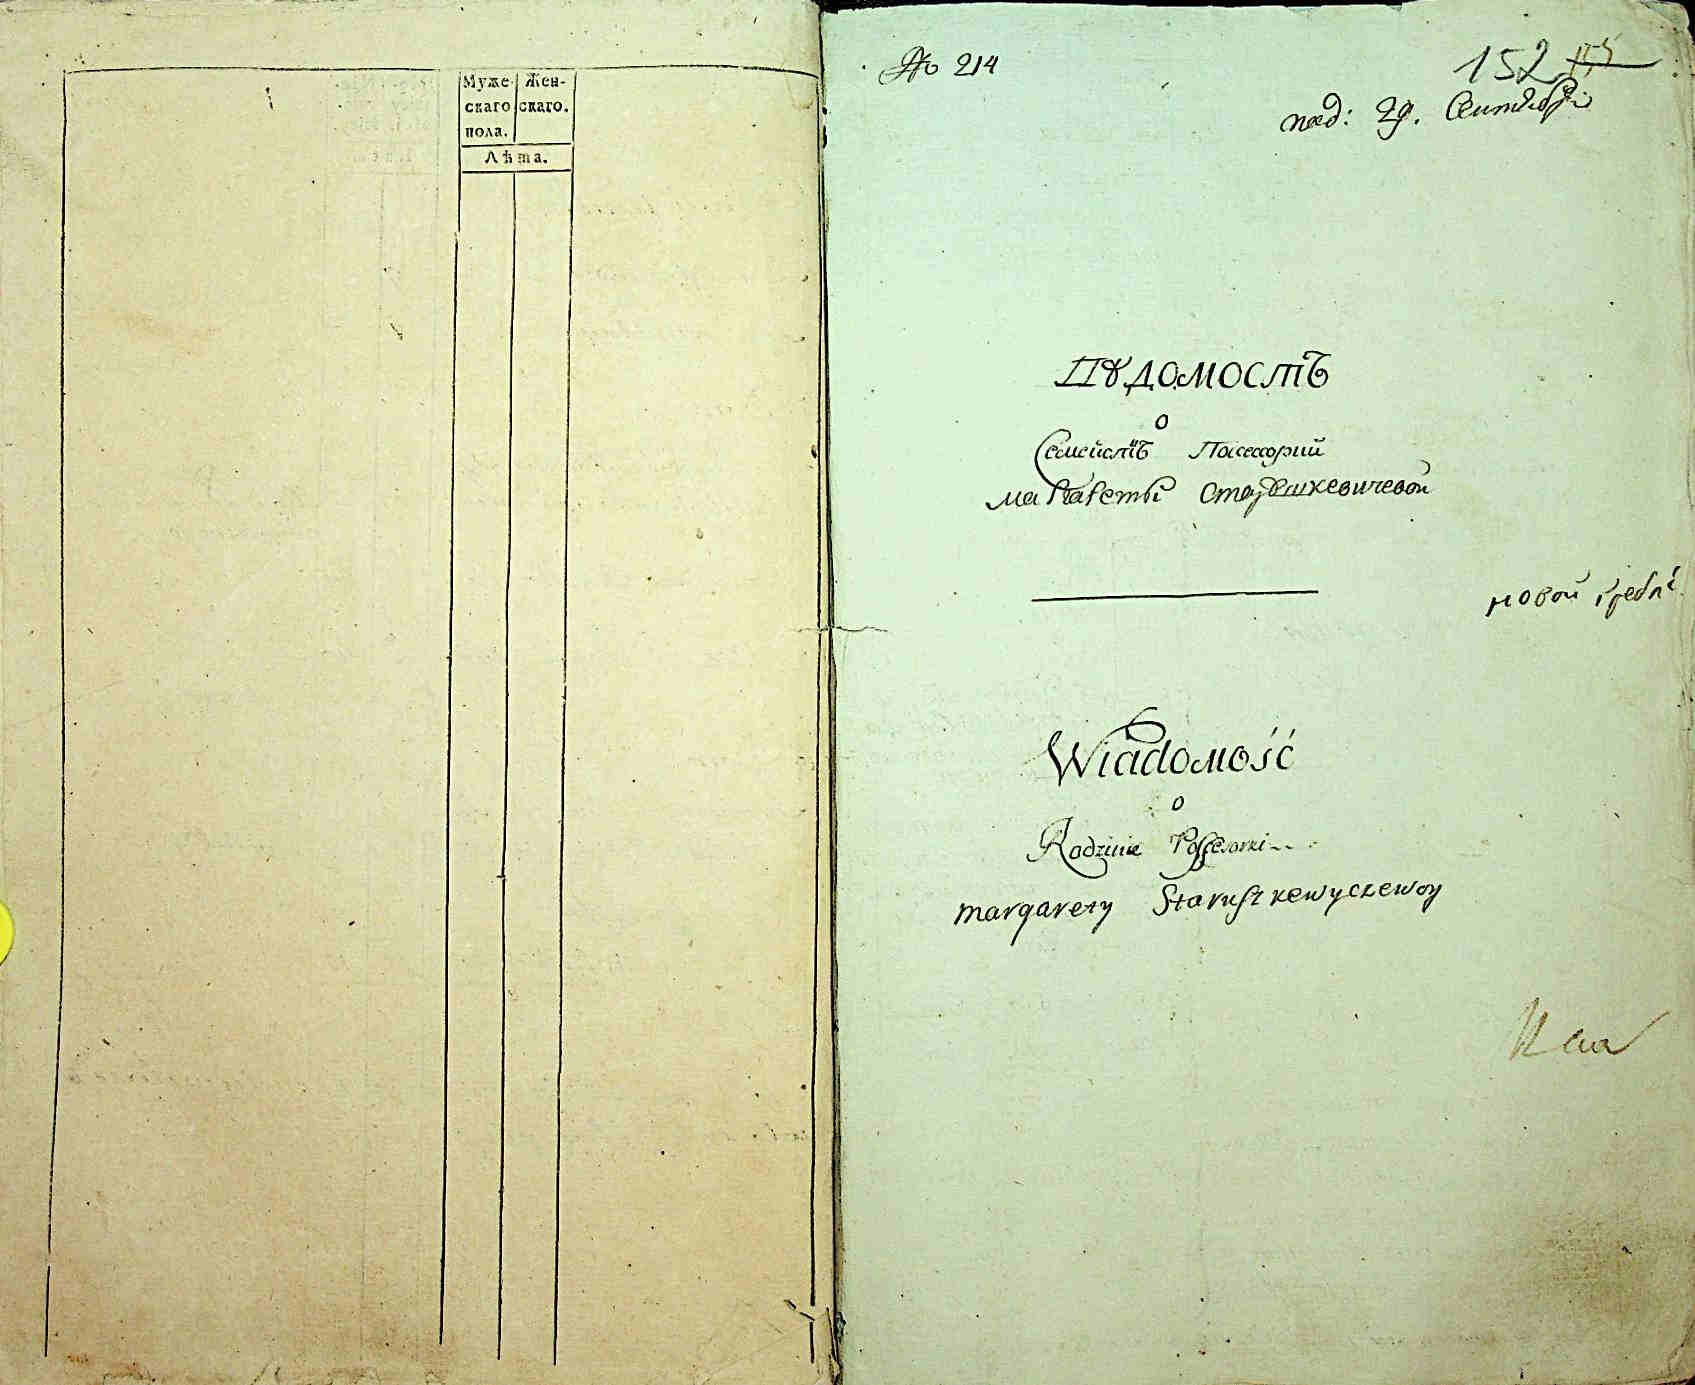 Муже- Жен-
скаго скаго.
пола.
Лѣта.
№ 214
152
под: 29. Сентября
Вѣдомость
о
Семействѣ Посессорий
Маргареты Старушкевичевой
новой гребл
Wiadomość
o
Rodzinie Possesorki
Margarety Staruszkewyczewoy